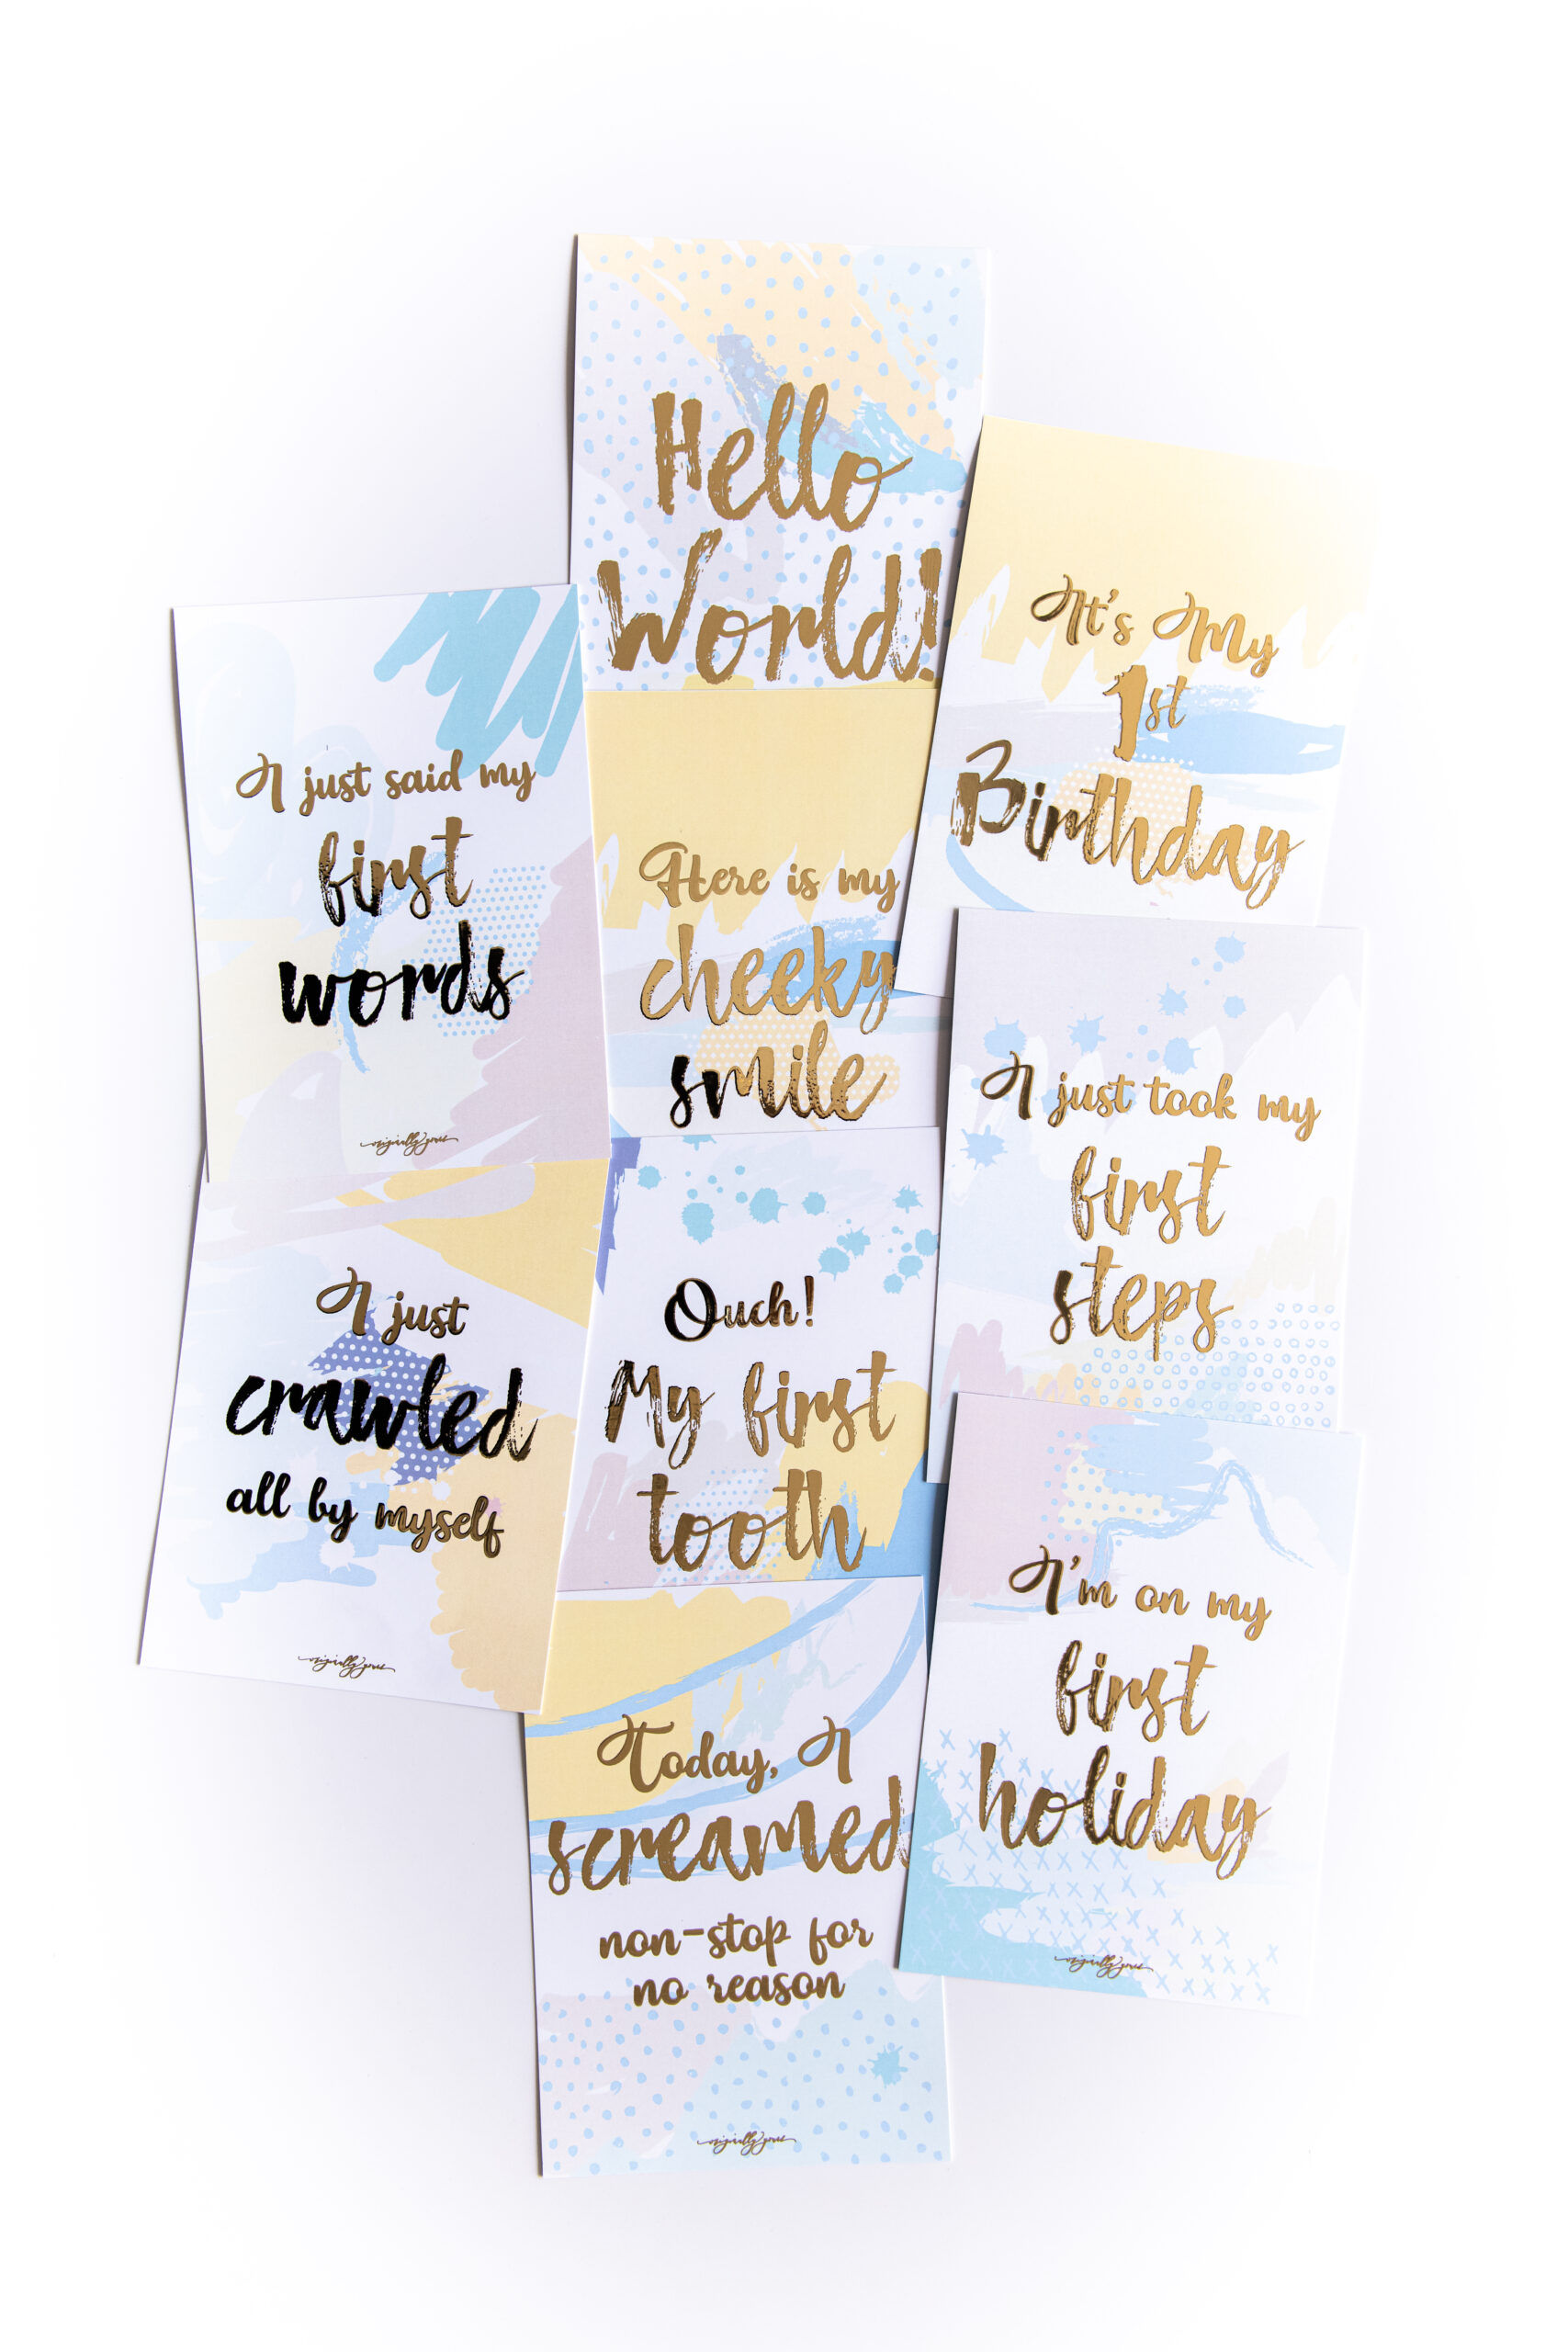 Hello
World!
It's My
1st
Birthday
I just said my
first
words
originally yours
Here is my
cheeky
smile
I just took my
first
steps
I just
crawled
all by myself
originally yours
Ouch!
My first
tooth
I'm on my
first
holiday
originally yours
Today, I
screamed
non-stop for
no reason
originally yours